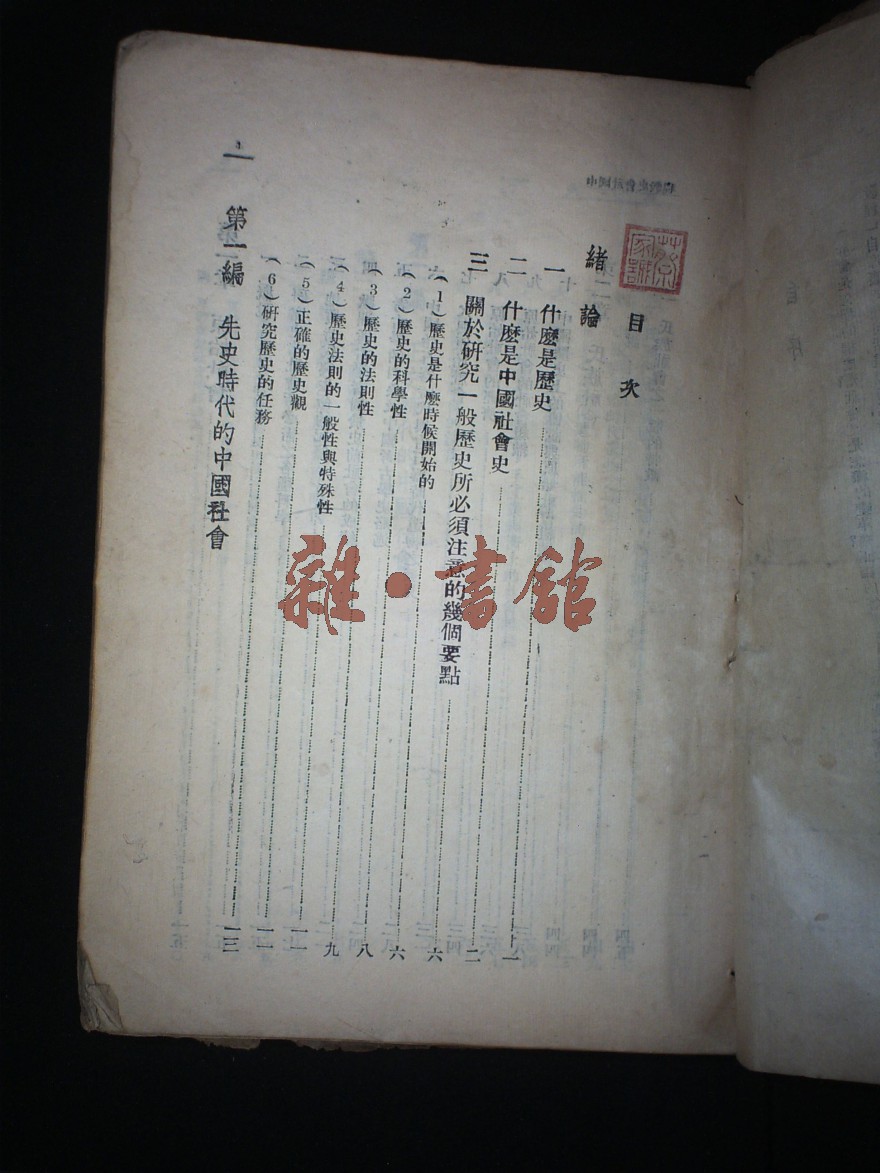 目次
緒論
一 什麼是歷史……一
二 什麼是中國社會史……二
三 關於研究一般歷史所必須注意的幾個要點……六
（1）歷史是什麼時候開始的……六
（2）歷史的科學性……八
（3）歷史的法則性……九
（4）歷史法則的一般性與特殊性……一一
（5）正確的歷史觀……一一
（6）研究歷史的任務……一三
第一編 先史時代的中國社會
一
雜·書館